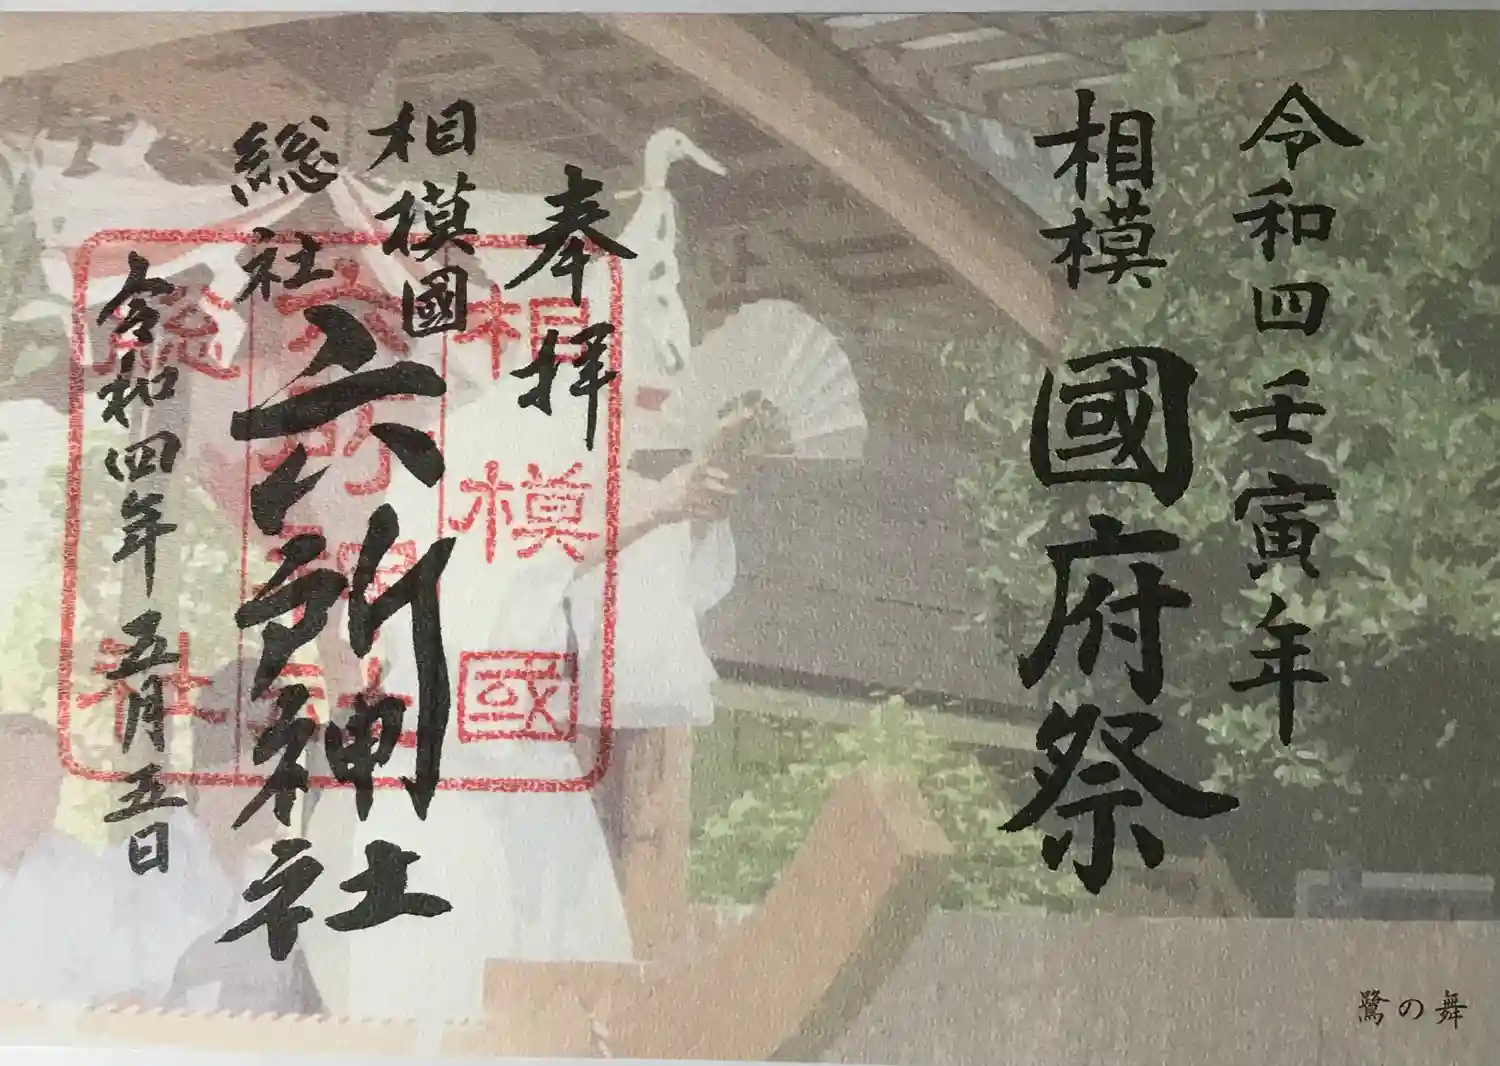 令和四壬寅年
相模國府祭
奉拝
相模國
総社
六所神社
令和四年五月五日
相模國
六所神社
総社
鷺の舞